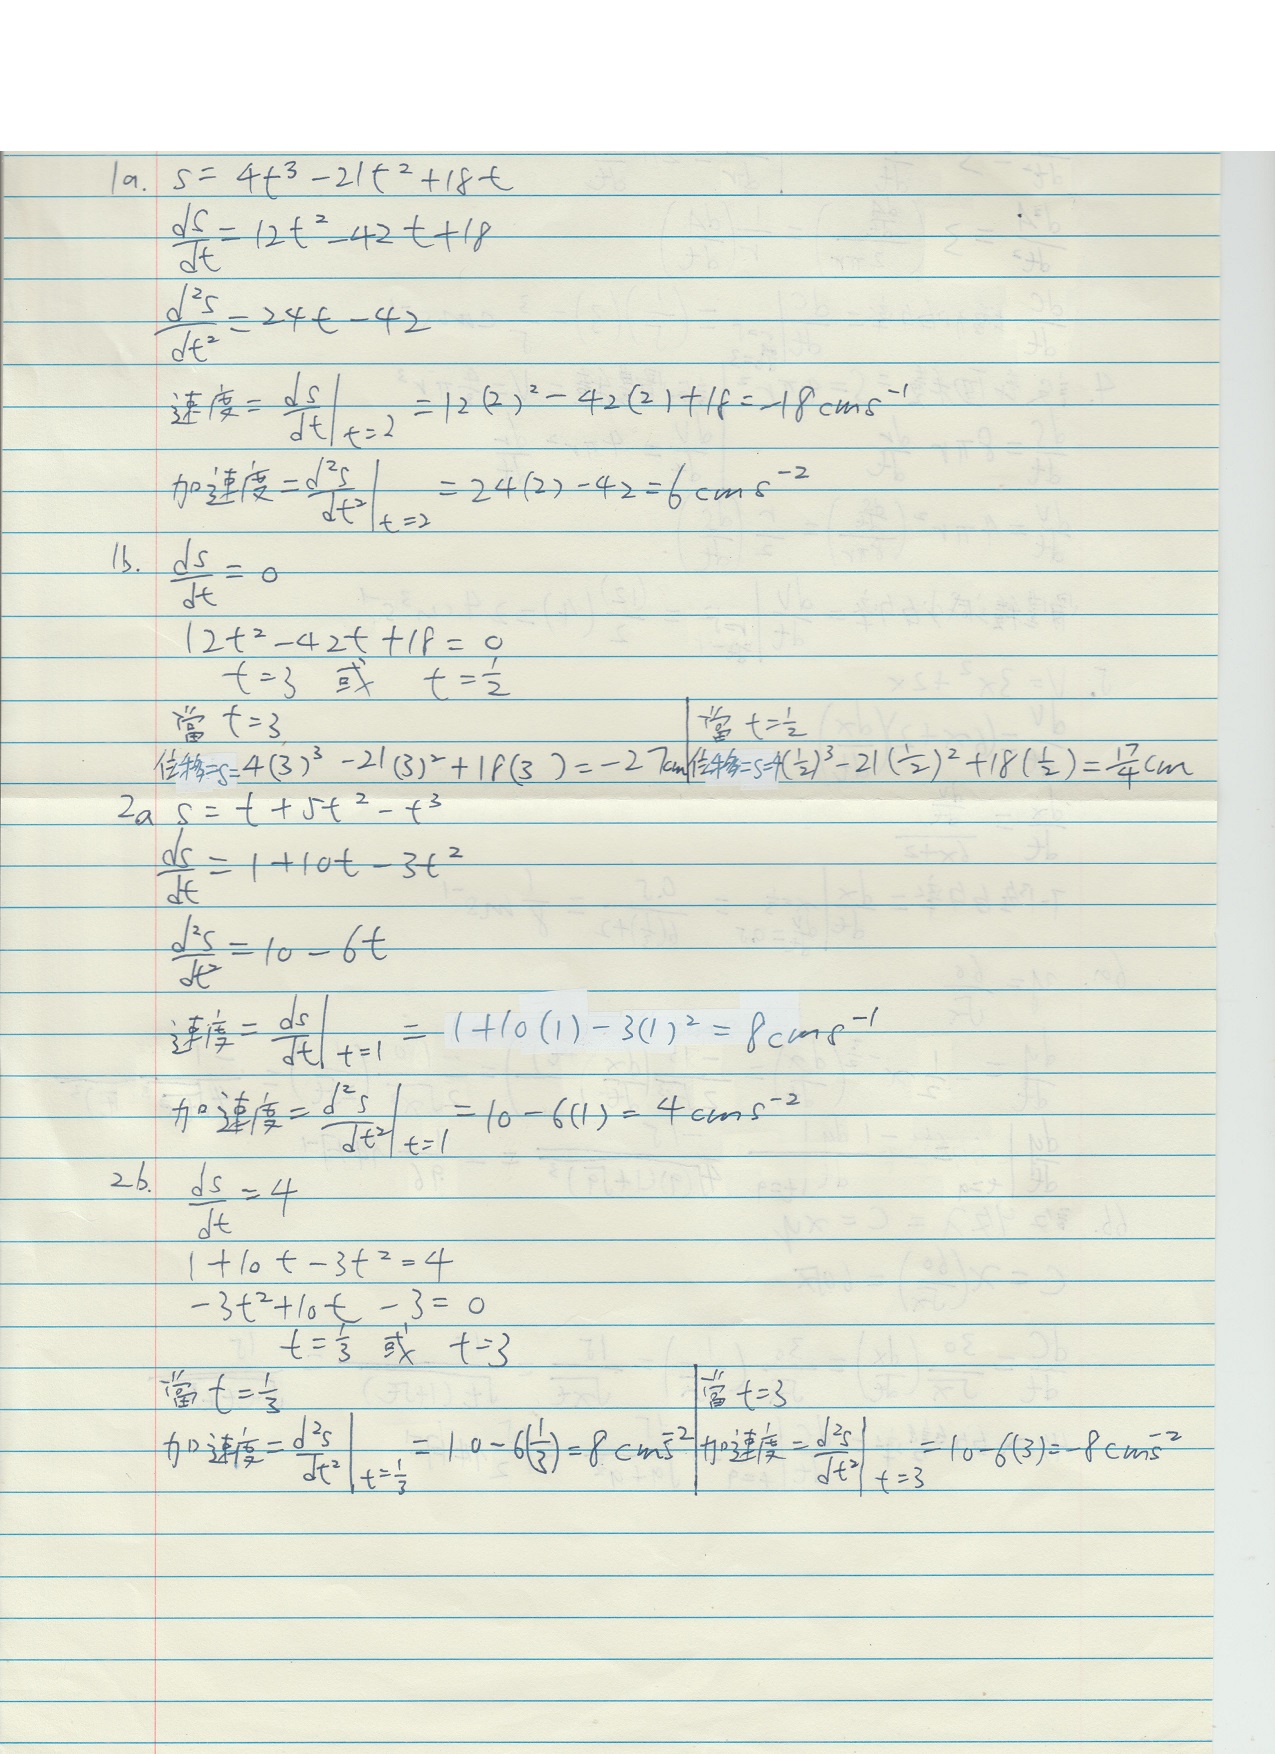 1a. s = 4t³ - 21t² + 18t
ds/dt = 12t² - 42t + 18
d²s/dt² = 24t - 42
速度 = ds/dt|t=2 = 12(2)² - 42(2) + 18 = -18 cms⁻¹
加速度 = d²s/dt²|t=2 = 24(2) - 42 = 6 cms⁻²
1b. ds/dt = 0
12t² - 42t + 18 = 0
t = 3 或 t = 1/2
當 t = 3
位移 = s = 4(3)³ - 21(3)² + 18(3) = -27cm
當 t = 1/2
位移 = s = 4(1/2)³ - 21(1/2)² + 18(1/2) = 17/4 cm
2a s = t + 5t² - t³
ds/dt = 1 + 10t - 3t²
d²s/dt² = 10 - 6t
速度 = ds/dt|t=1 = 1 + 10(1) - 3(1)² = 8 cms⁻¹
加速度 = d²s/dt²|t=1 = 10 - 6(1) = 4 cms⁻²
2b. ds/dt = 4
1 + 10t - 3t² = 4
-3t² + 10t - 3 = 0
t = 1/3 或 t = 3
當 t = 1/3
加速度 = d²s/dt²|t=1/3 = 10 - 6(1/3) = 8 cms⁻²
當 t = 3
加速度 = d²s/dt²|t=3 = 10 - 6(3) = -8 cms⁻²